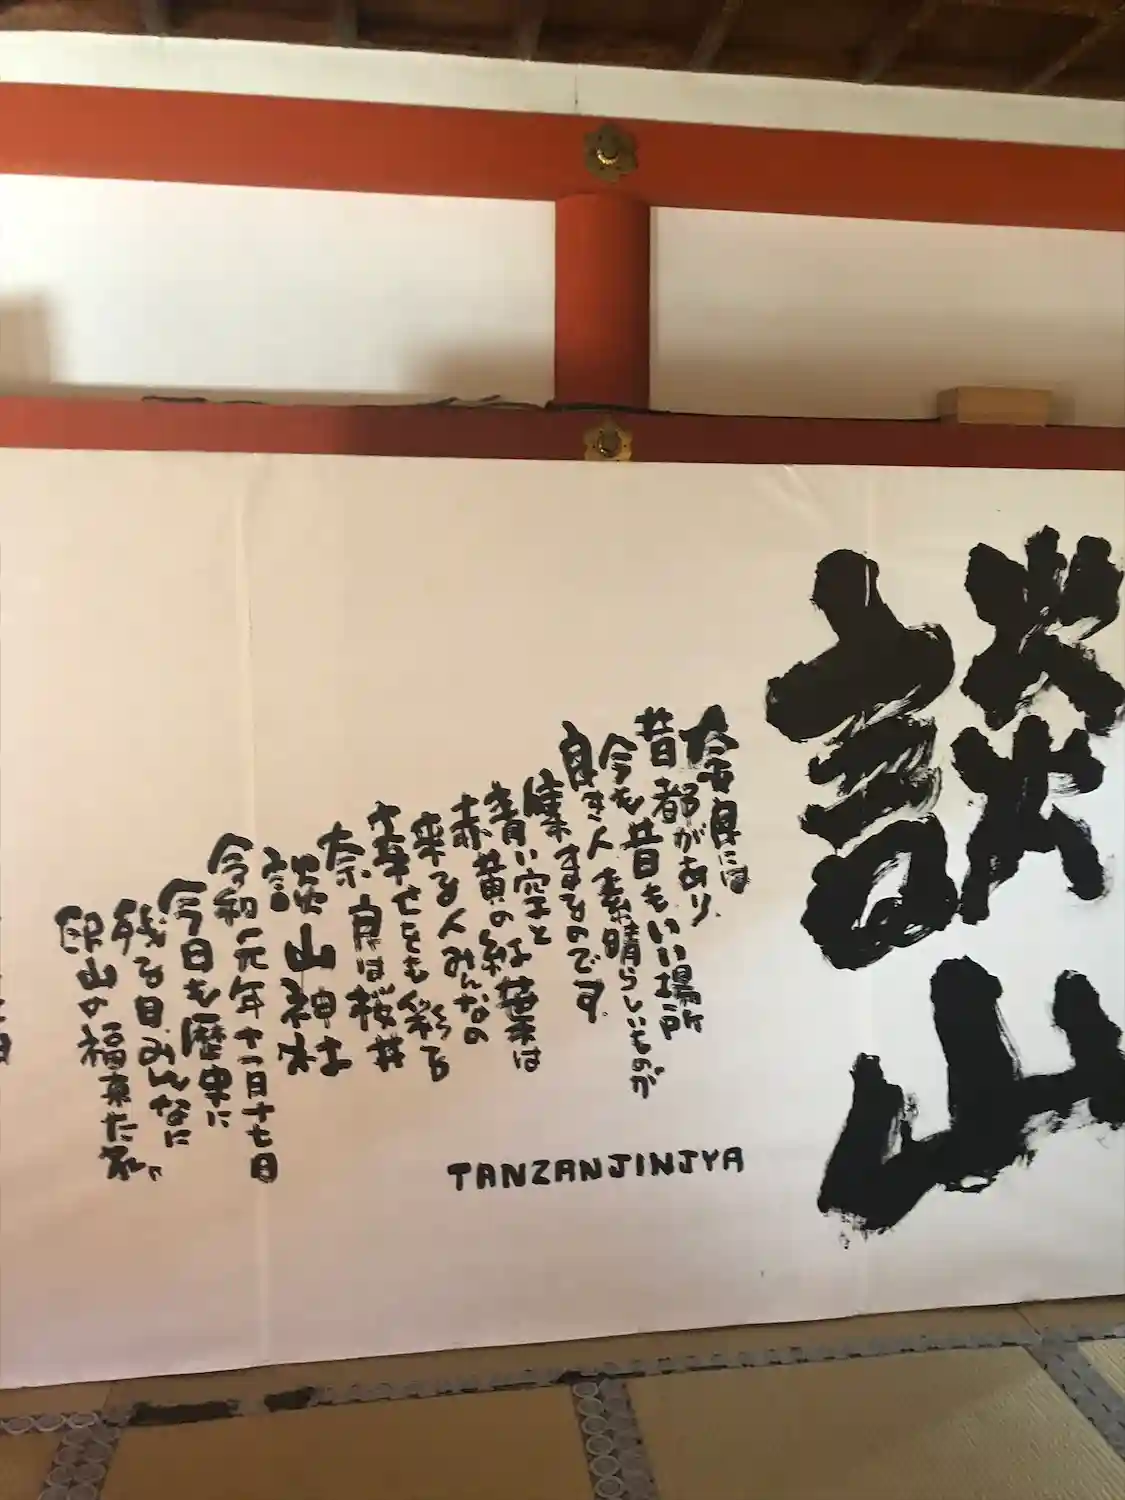 談山
奈良には
昔都があり
昔も今もいい場所
今も昔も素晴らしいものが
良き人
集まるのです
青い空と
赤黄の紅葉は
来る人みんなの
幸せをも彩る
奈良は桜井
談山神社
令和元年十一月十七日
今日も歴史に
残る日みんなに
山の福来たる
TANZANJINJYA